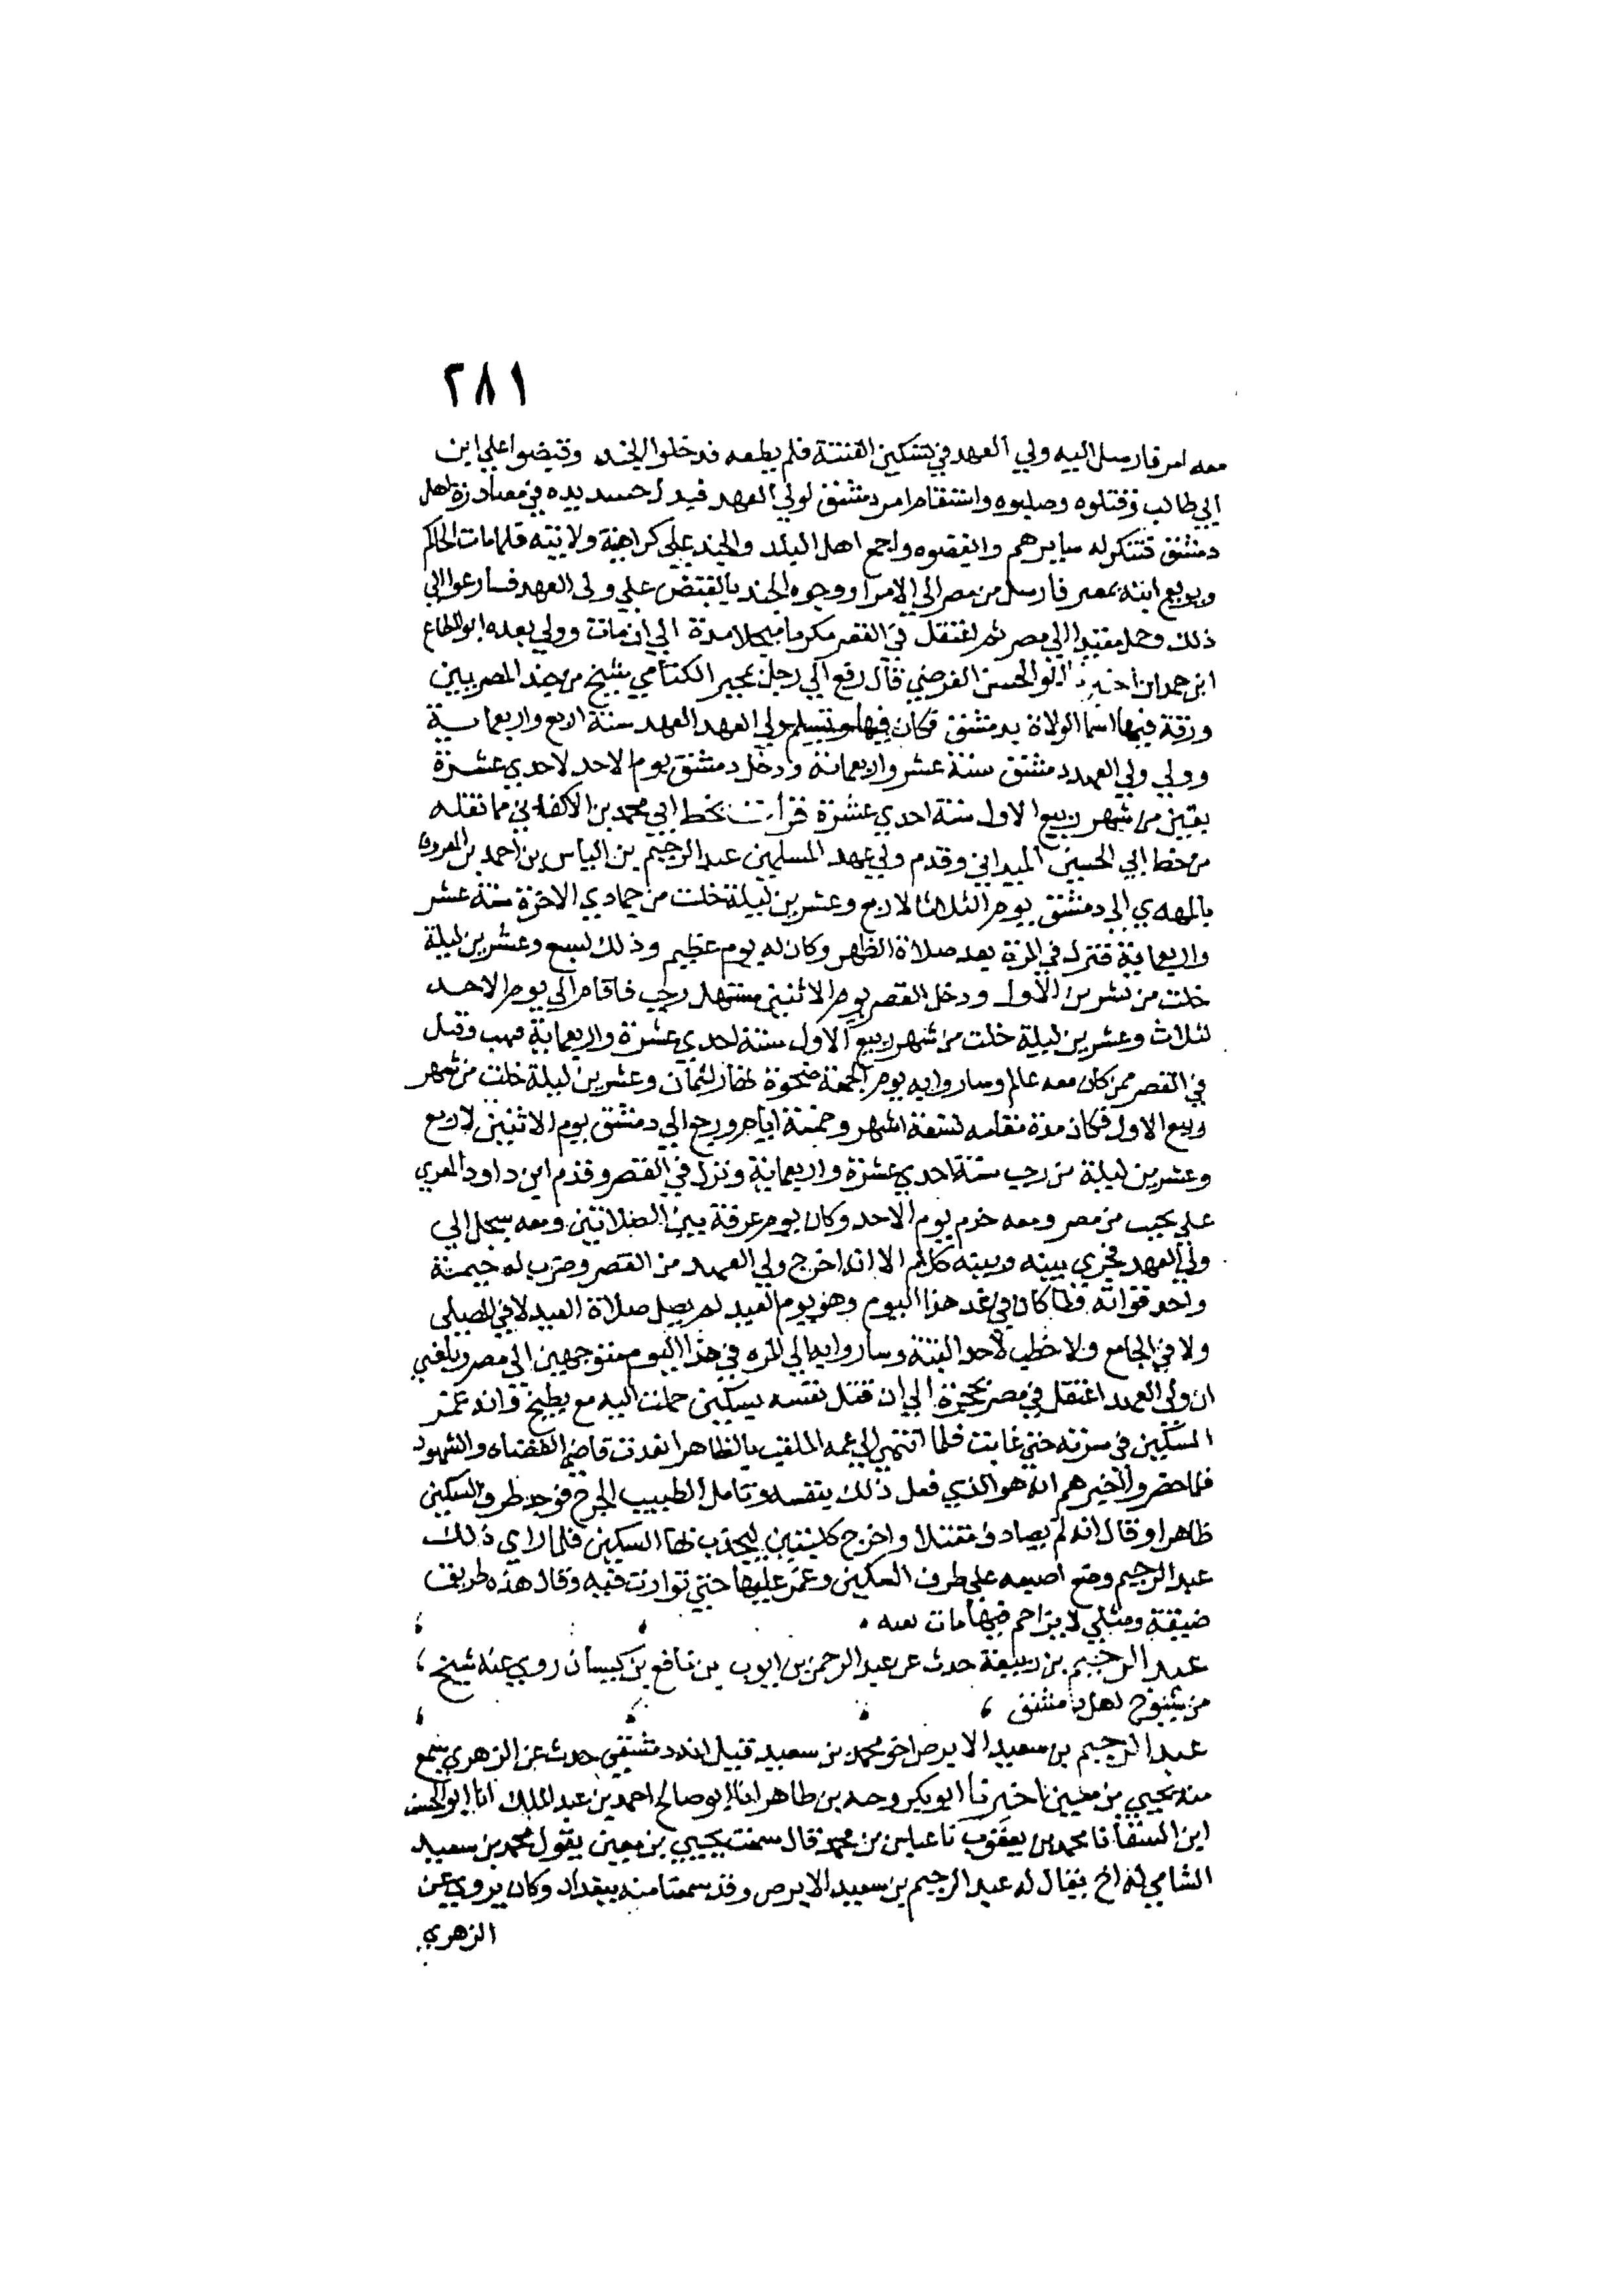 ٢٨١
معه امر فارسل اليه ولي العهد في تسكين الفتنة فلم يطعه فدخلوا الجند وقبضوا علي ابن
ابي طالب فقتلوه وصلبوه واستقام امر دمشق لولي العهد فيد يده في مصادرة اهل
دمشق فتنكر له سايرهم وابغضوه واجمع اهل البلد والجند علي كراهية ولايته فلما مات الحاكم
وبويع ابنه بمصر فارسل من مصر الي الامرا ووجوه الجند بالقبض علي ولي العهد فسارعوا الي
ذلك وحمل مقيدا الي مصر ثم اعتقل في القصر مكرما مبجلا مدة الي ان مات وولي بعده ابو المطاع
ابن حمدان اخبرنا ابو الحسن الفرضي قال رفع الي رجل بمجير الكتامي شيخ من جند المصريين
ورقة فيها اسما الولاة بدمشق فكان فيها وتسلم ولي العهد العهد سنة اربع واربعماية
وولي ولي العهد دمشق سنة عشر واربعمائة ودخل دمشق يوم الاحد لاحدي عشرة
بقين من شهر ربيع الاول سنة احدي عشرة قرأت بخط ابي محمد بن الاكفاني مما نقله
من خط ابي الحسين الميداني وقدم ولي عهد المسلمين عبد الرحيم بن الياس بن احمد بن المعروف
بالمهدي الي دمشق يوم الثلاثا لاربع وعشرين ليلة خلت من جمادي الاخرة سنة عشر
واربعماية فنزل في المزة بعد صلاة الظهر وكان له يوم عظيم وذلك لسبع وعشرين ليلة
خلت من تشرين الاول ودخل القصر يوم الاثنين مستهل رجب فاقام الي يوم الاحد
لثلاث وعشرين ليلة خلت من شهر ربيع الاول سنة احدي عشرة واربعماية فهب وقتل
في القصر ممن كان معه عالم وساروا به يوم الجمعة ضحوة نهار لثمان وعشرين ليلة خلت من شهر
ربيع الاول فكان مدة مقامه تسعة اشهر وخمسة ايام ورجع الي دمشق يوم الاثنين لاربع
وعشرين ليلة من رجب سنة احدي عشرة واربعماية ونزل في القصر وقدم ابن داود المغربي
علي نجيب من مصر ومعه خدم يوم الاحد وكان يوم عرفة بين الصلاتين ومعه سجل الي
ولي العهد فجري بينه وبينه كلام الا انه اخرج ولي العهد من القصر وضرب له خيمة
فلما كان في غد هذا اليوم وهو يوم العيد لم يصل صلاة العيد لا في المصلي
ولا في الجامع ولا خطب لاحد البتة وساروا به الي المزه في هذا اليوم متوجهين الي مصر وبلغني
ان ولي العهد اعتقل في مصر بحجرة الي ان قتل نفسه بسكين حملت اليه مع بطيخ وانه غمز
السكين في سرته حتي غابت فلما انتهي الي عمه الملقب بالظاهر انفذت قاضي القضاه والشهود
فلما حضروا اخبرهم انه هو الذي فعل ذلك بنفسه وتامل الطبيب الجرح فوجد طرف السكين
ظاهرا وقال انه لم يصادف مقتلا واخرج كلبتين ليجذب بها السكين فلما راي ذلك
عبد الرحيم وضع اصبعه علي طرف السكين وغمز عليها حتي توارت فيه وقال هذه طريق
ضيقة ومثلي لا يزاحم فيها مات
عبد الرحيم بن ربيعة حدث عن عبد الرحمن بن ايوب بن نافع بن كيسان روي عنه شيخ
من شيوخ اهل دمشق
عبد الرحيم بن سعيد الابرص اخو محمد بن سعيد قيل انه دمشقي حدث عن الزهري سمع
منه يحيي بن معين اخبرنا ابو بكر وجيه بن طاهر انا ابو صالح احمد بن عبد الملك انا ابو الحسن
ابن السقا نا محمد بن يعقوب نا عباس بن محمد قال سمعت يحيي بن معين يقول محمد بن سعيد
الشامي له اخ يقال له عبد الرحيم بن سعيد الابرص وقد سمعنا منه ببغداد وكان يروي عن
الزهري